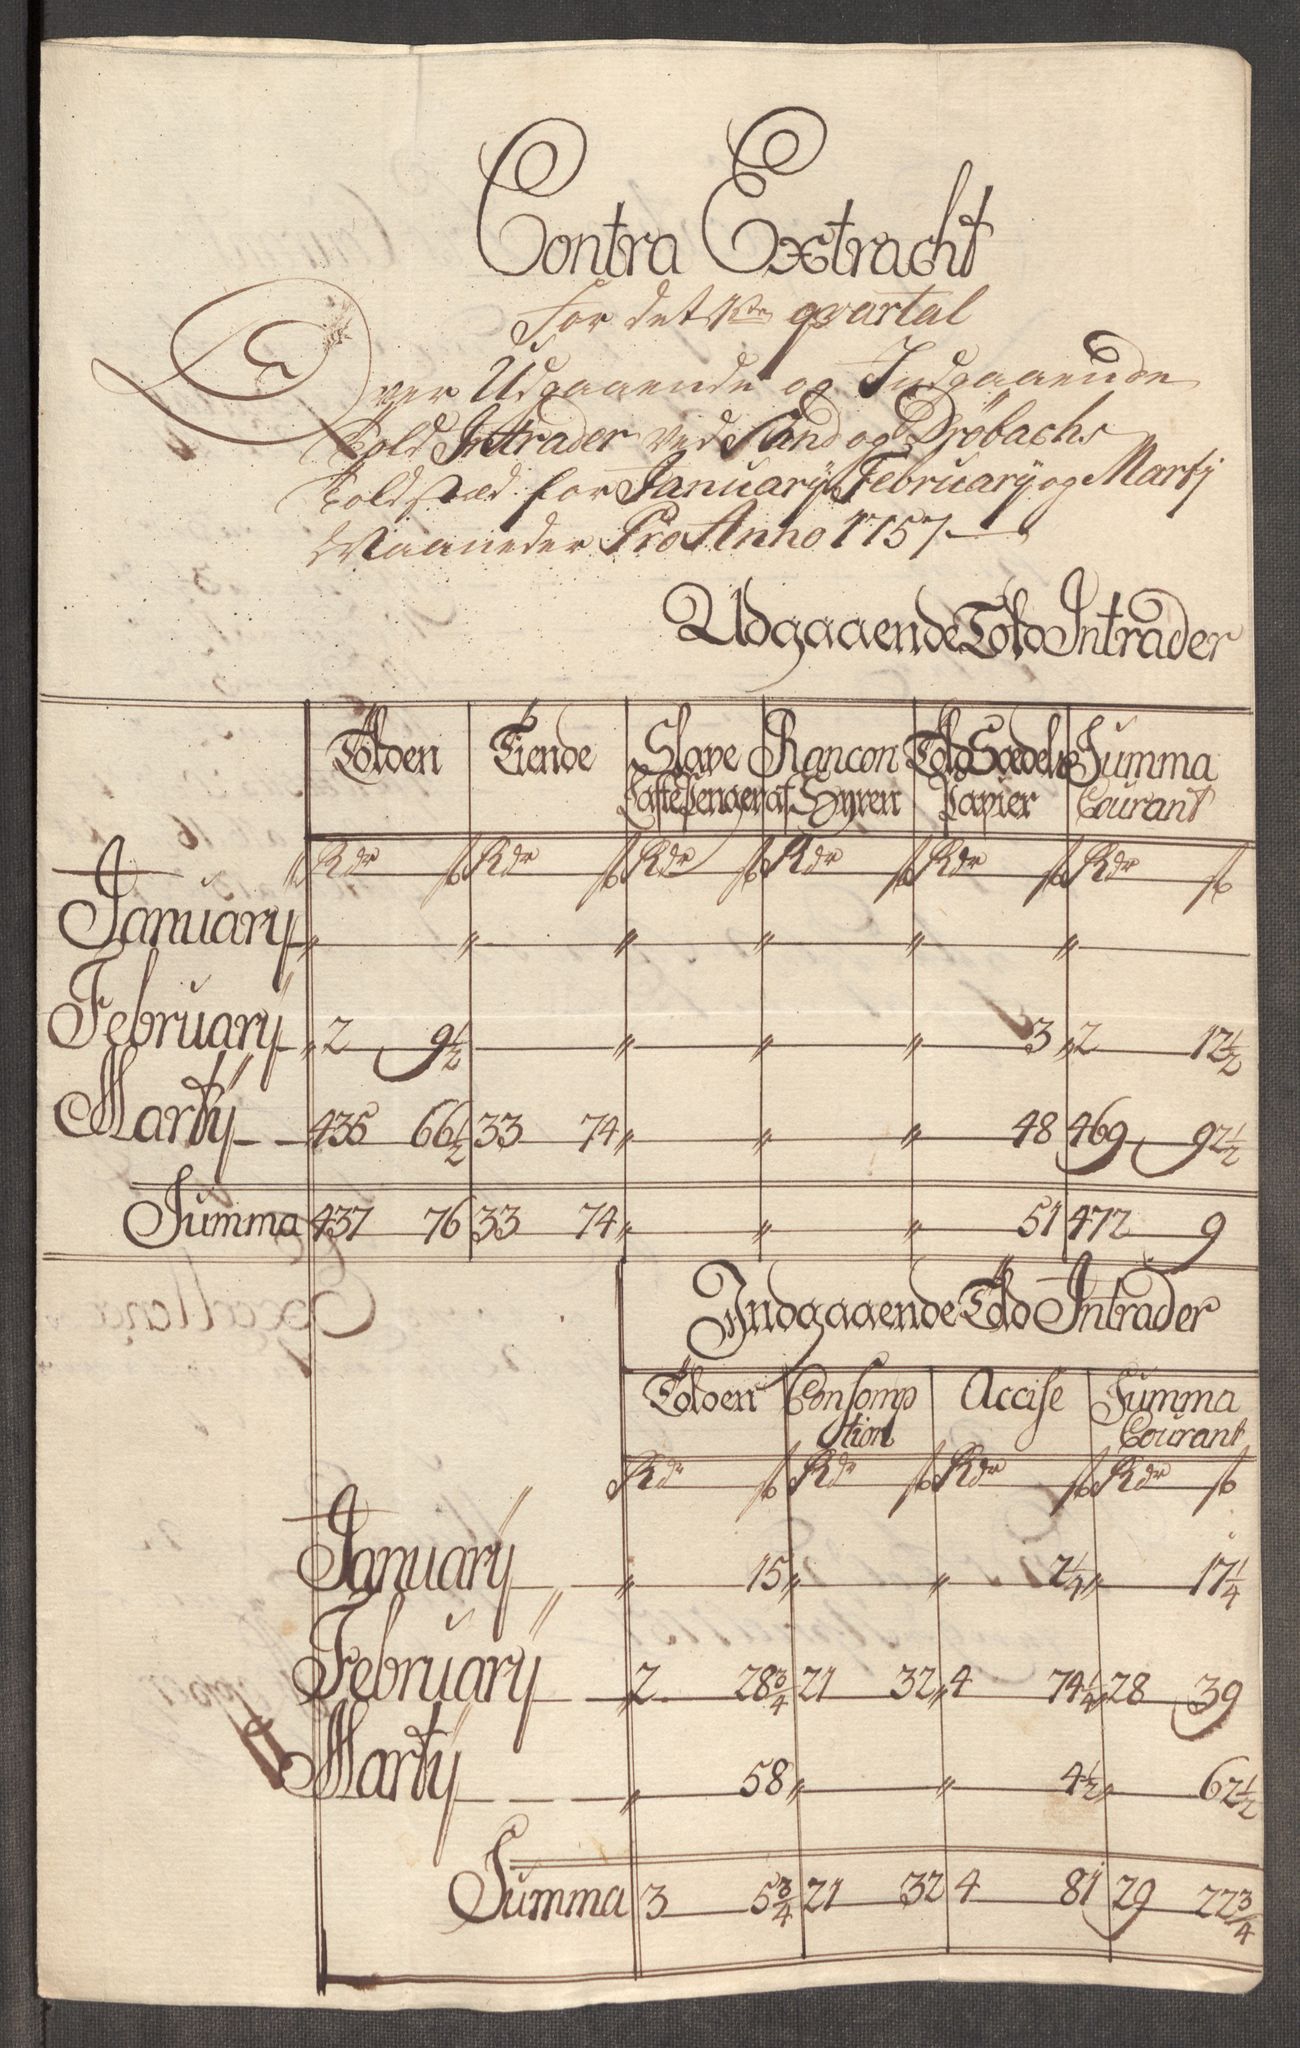 Contra Extracht
For det 1ste qvartal
Over Udgaaende og Indgaaende
Told Intrader ved Sand og Dröbachs
Toldstæd for January, February og Marty
Maaneder Pro Anno 1757
Udgaaende Told Intrader
Tolden Tiende Slave Rancon Told Sædels Summa
Casse Penger af Hyren Papier Courant
Rdr ß Rdr ß Rdr ß Rdr ß Rdr ß Rdr ß
January " " " " " "
February " 2 9½ " " " 3 " 2 12½
Marty 435 66½ 33 74 " " " 48 469 92½
Summa 437 76 33 74 " " " 51 472 9
Indgaaende Told Intrader
Tolden Consomp Accise Summa
tion Courant
Rdr ß Rdr ß Rdr ß Rdr ß
January " 15 " " 2¼ " 17¼
February 2 28¾ 21 32 " 4 74¼ " 28 39
Marty " 58 " " 4½ " 62½
Summa 3 5¾ 21 32 4 81 29 22¾